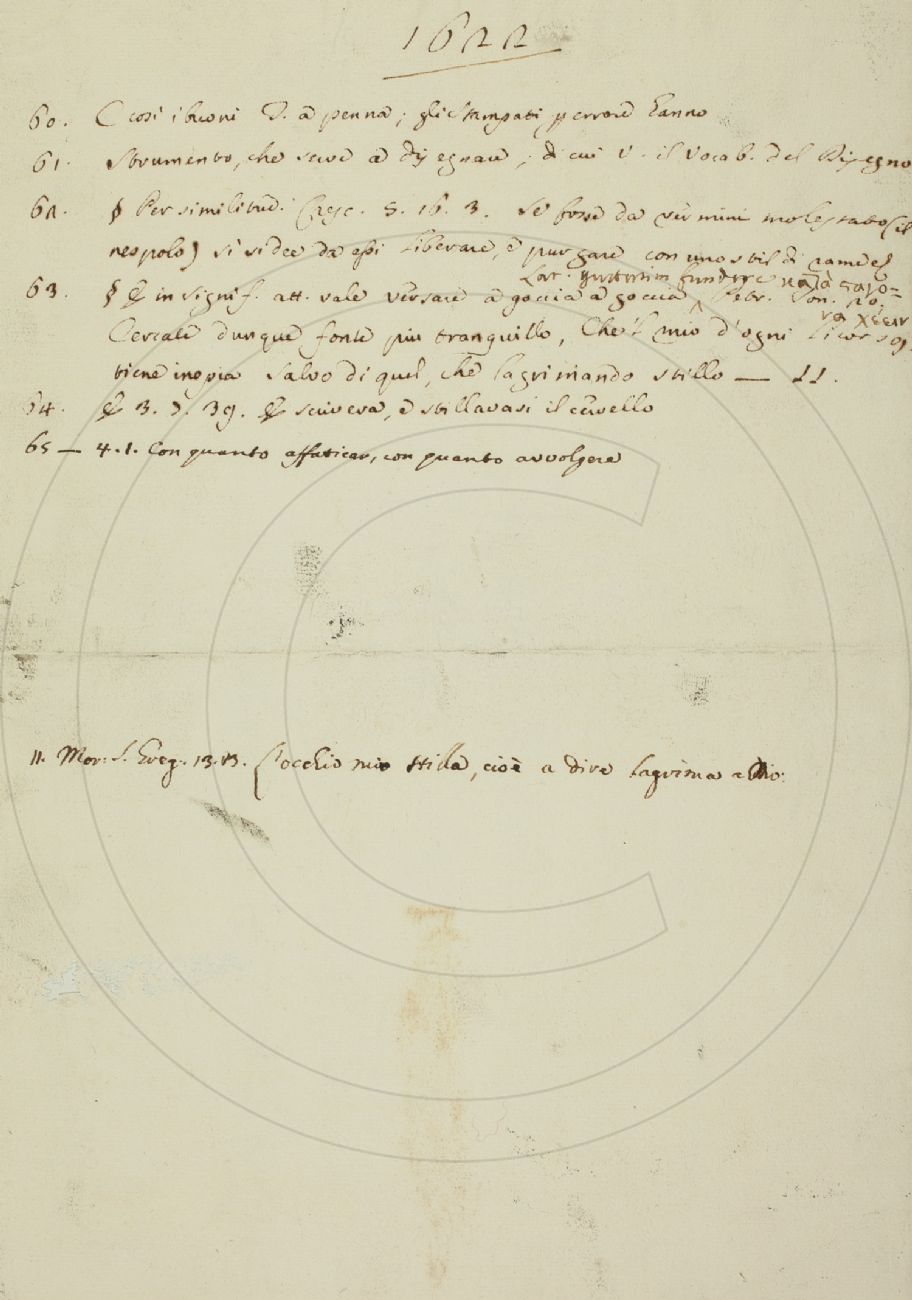 1622
60. E così i buoni T. a penna; gli stampati p errore hanno
61. Strumento, che serve a disegnare; di cui v. il Vocab. del Disegno
62. § Per similitud. Cresc. 5. 16. 3. Se fosse da vermini molestato (il
nespolo) si si dee da essi liberare, e purgare con uno stil di rame es
Lat. guttatim fundere κατὰ σαγό-
63. § E in signif. att. vale versare a goccia a goccia ^ Petr. Son. 20.
να χέειν
Cercate dunque fonte più tranquillo, Che 'l mio d'ogni licor so=
stiene inopia Salvo di quel, che lagrimando stillo — 11.
64. E 3. 7. 39. E scriveva, e stillavasi il cervello
65 — 4. 1. Con quanto affaticar, con quanto avvolgere
11. Mor: S. Greg. 13. 13. L'occhio mio stilla, cioè a dire lagrima a Dio: